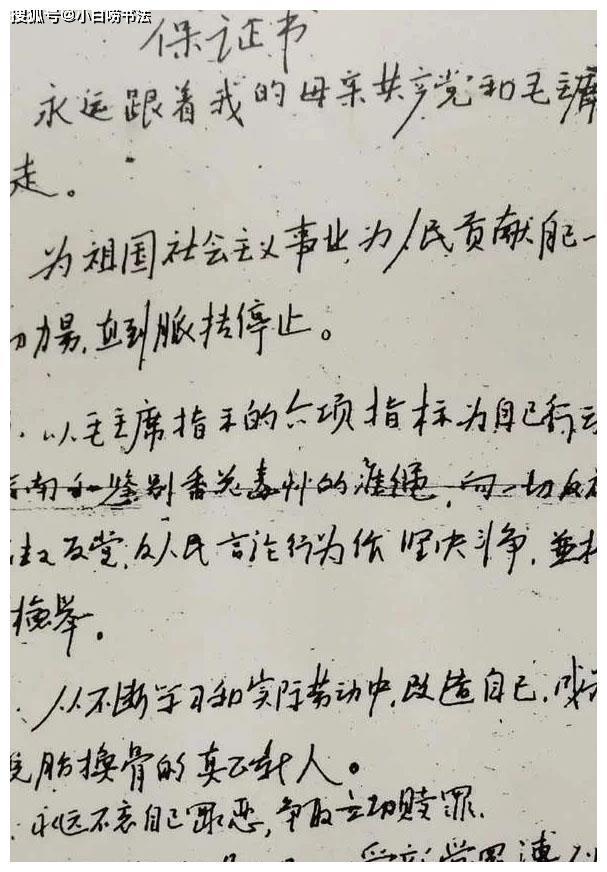 搜狐号@小白唠书法
保证书
永远跟着我的母亲共产党和毛主席
走。
为祖国社会主义事业,为人民贡献自己一
切力量,直到脉搏停止。
以毛主席指示的六项指标为自己行动
指南和鉴别香花毒草的准绳,向一切反
主义反党,反人民言论行为作坚决斗争,并
检举。
从不断学习和实际劳动中,改造自己,成为
脱胎换骨的真正新人。
永远不忘自己罪恶,争取立功赎罪。